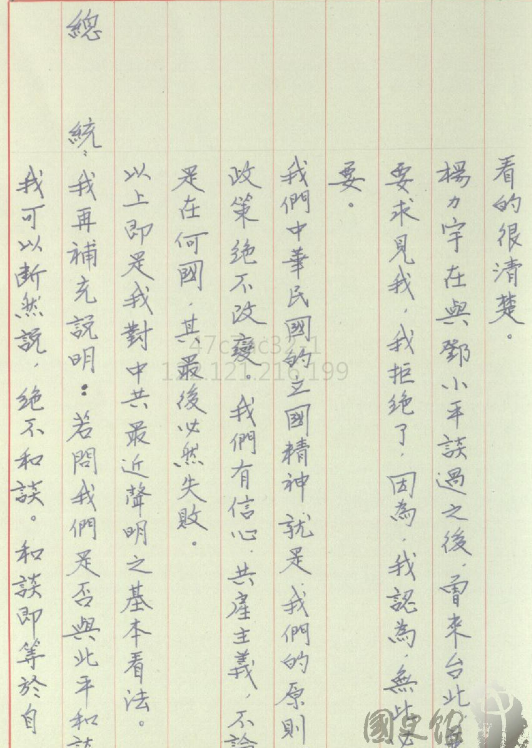 看的很清楚。
楊力宇在與鄧小平談過之後，曾來台北
要求見我，我拒絕了，因為，我認為，無此
要。
我們中華民國的立國精神，就是，我們的原則
政策絕不改變。我們有信心，共產主義，不論
是在何國，其最後必然失敗。
以上即是我對中共最近聲明之基本看法。
總 統：我再補充說明：若問我們是否與此平和談
我可以斷然說，絕不和談。和談即等於自
47c7ac32-1
112.121.216.199
國史館